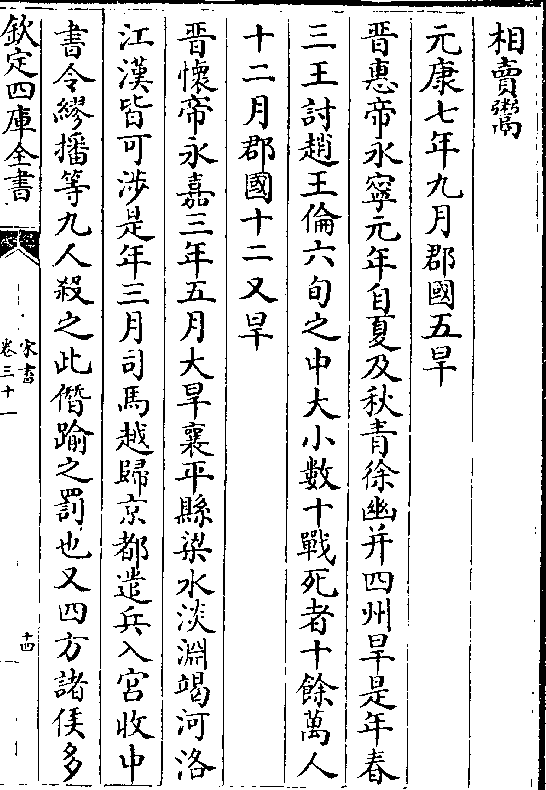 相賣鬻
元康七年九月郡國五旱
晉惠帝永寧元年自夏及秋青徐幽并四州旱是年春
三王討趙王倫六旬之中大小數十戰死者十餘萬人
十二月郡國十二又旱
晉懷帝永嘉三年五月大旱襄平縣梁水淡淵竭河洛
江漢皆可涉是年三月司馬越歸京都遣兵入宮收中
書令繆播等九人殺之此僭踰之罰也又四方諸侯多
欽定四庫全書
宋書
卷三十一
十四